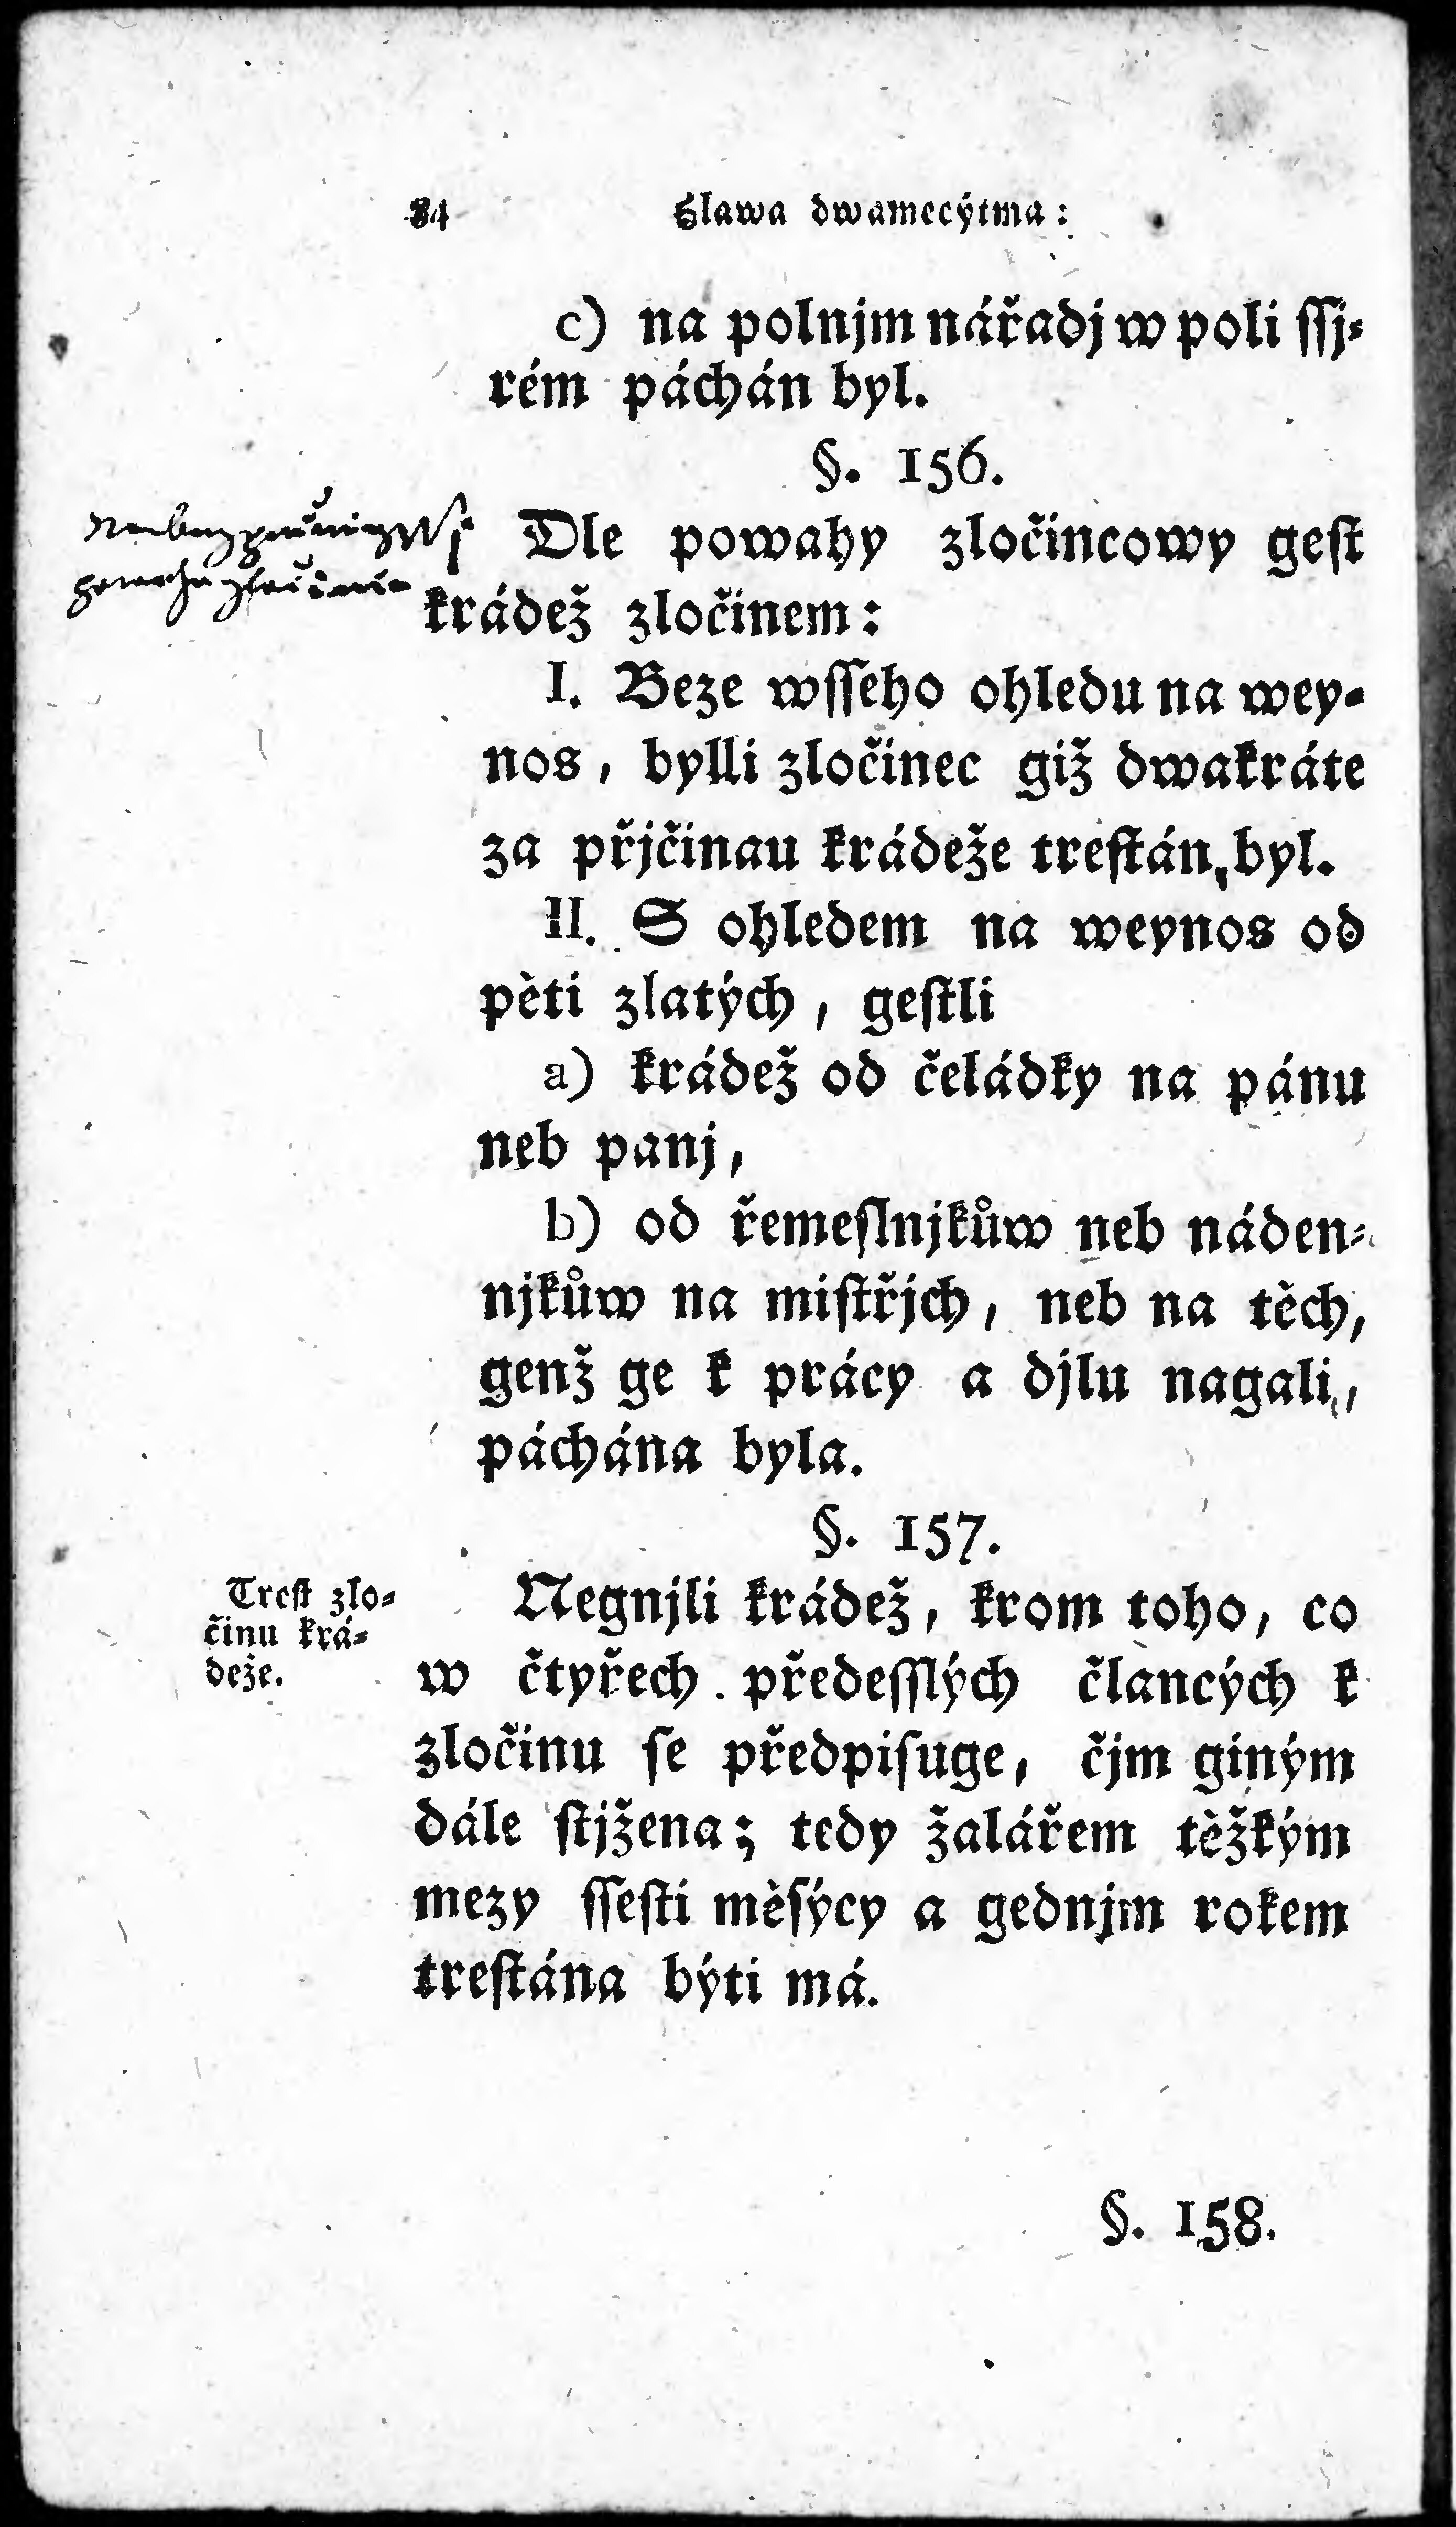 84 Hlawa dwamecýtma:
c) na polnjm nářadj w poli ſſj⸗
rém páchán byl.
§. 156.
Dle powahy zločincowy geſt
krádež zločinem:
I. Beze wſſeho ohledu na wey⸗
nos, bylli zločinec giž dwakráte
za přjčinau krádeže treſtán byl.
II. S ohledem na weynos od
pěti zlatých, geſtli
a) krádež od čeládky na pánu
neb panj,
b) od řemeſlnjkůw neb náden⸗
njkůw na miſtřjch, neb na těch,
genž ge k prácy a djlu nagali,
páchána byla.
§. 157.
Treſt zlo⸗
činu krá⸗
deže.
Negnjli krádež, krom toho, co
w čtyřech předeſſlých článcých k
zločinu ſe předpiſuge, čjm giným
dále ſtjžena; tedy žalářem těžkým
mezy ſſeſti měſýcy a gednjm rokem
treſtána býti má.
§. 158.